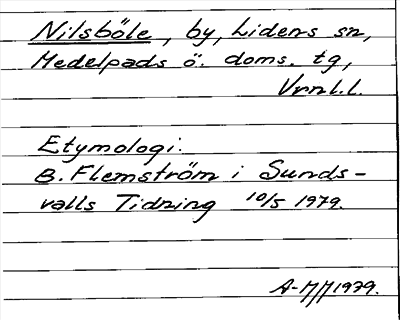 Nilsböle, by, Lidens sn,
Medelpads ö. doms. tg,
Vrnl.l.
Etymologi:
B. Flemström i Sunds-
valls Tidning 10/5 1979.
A-MM 1979.